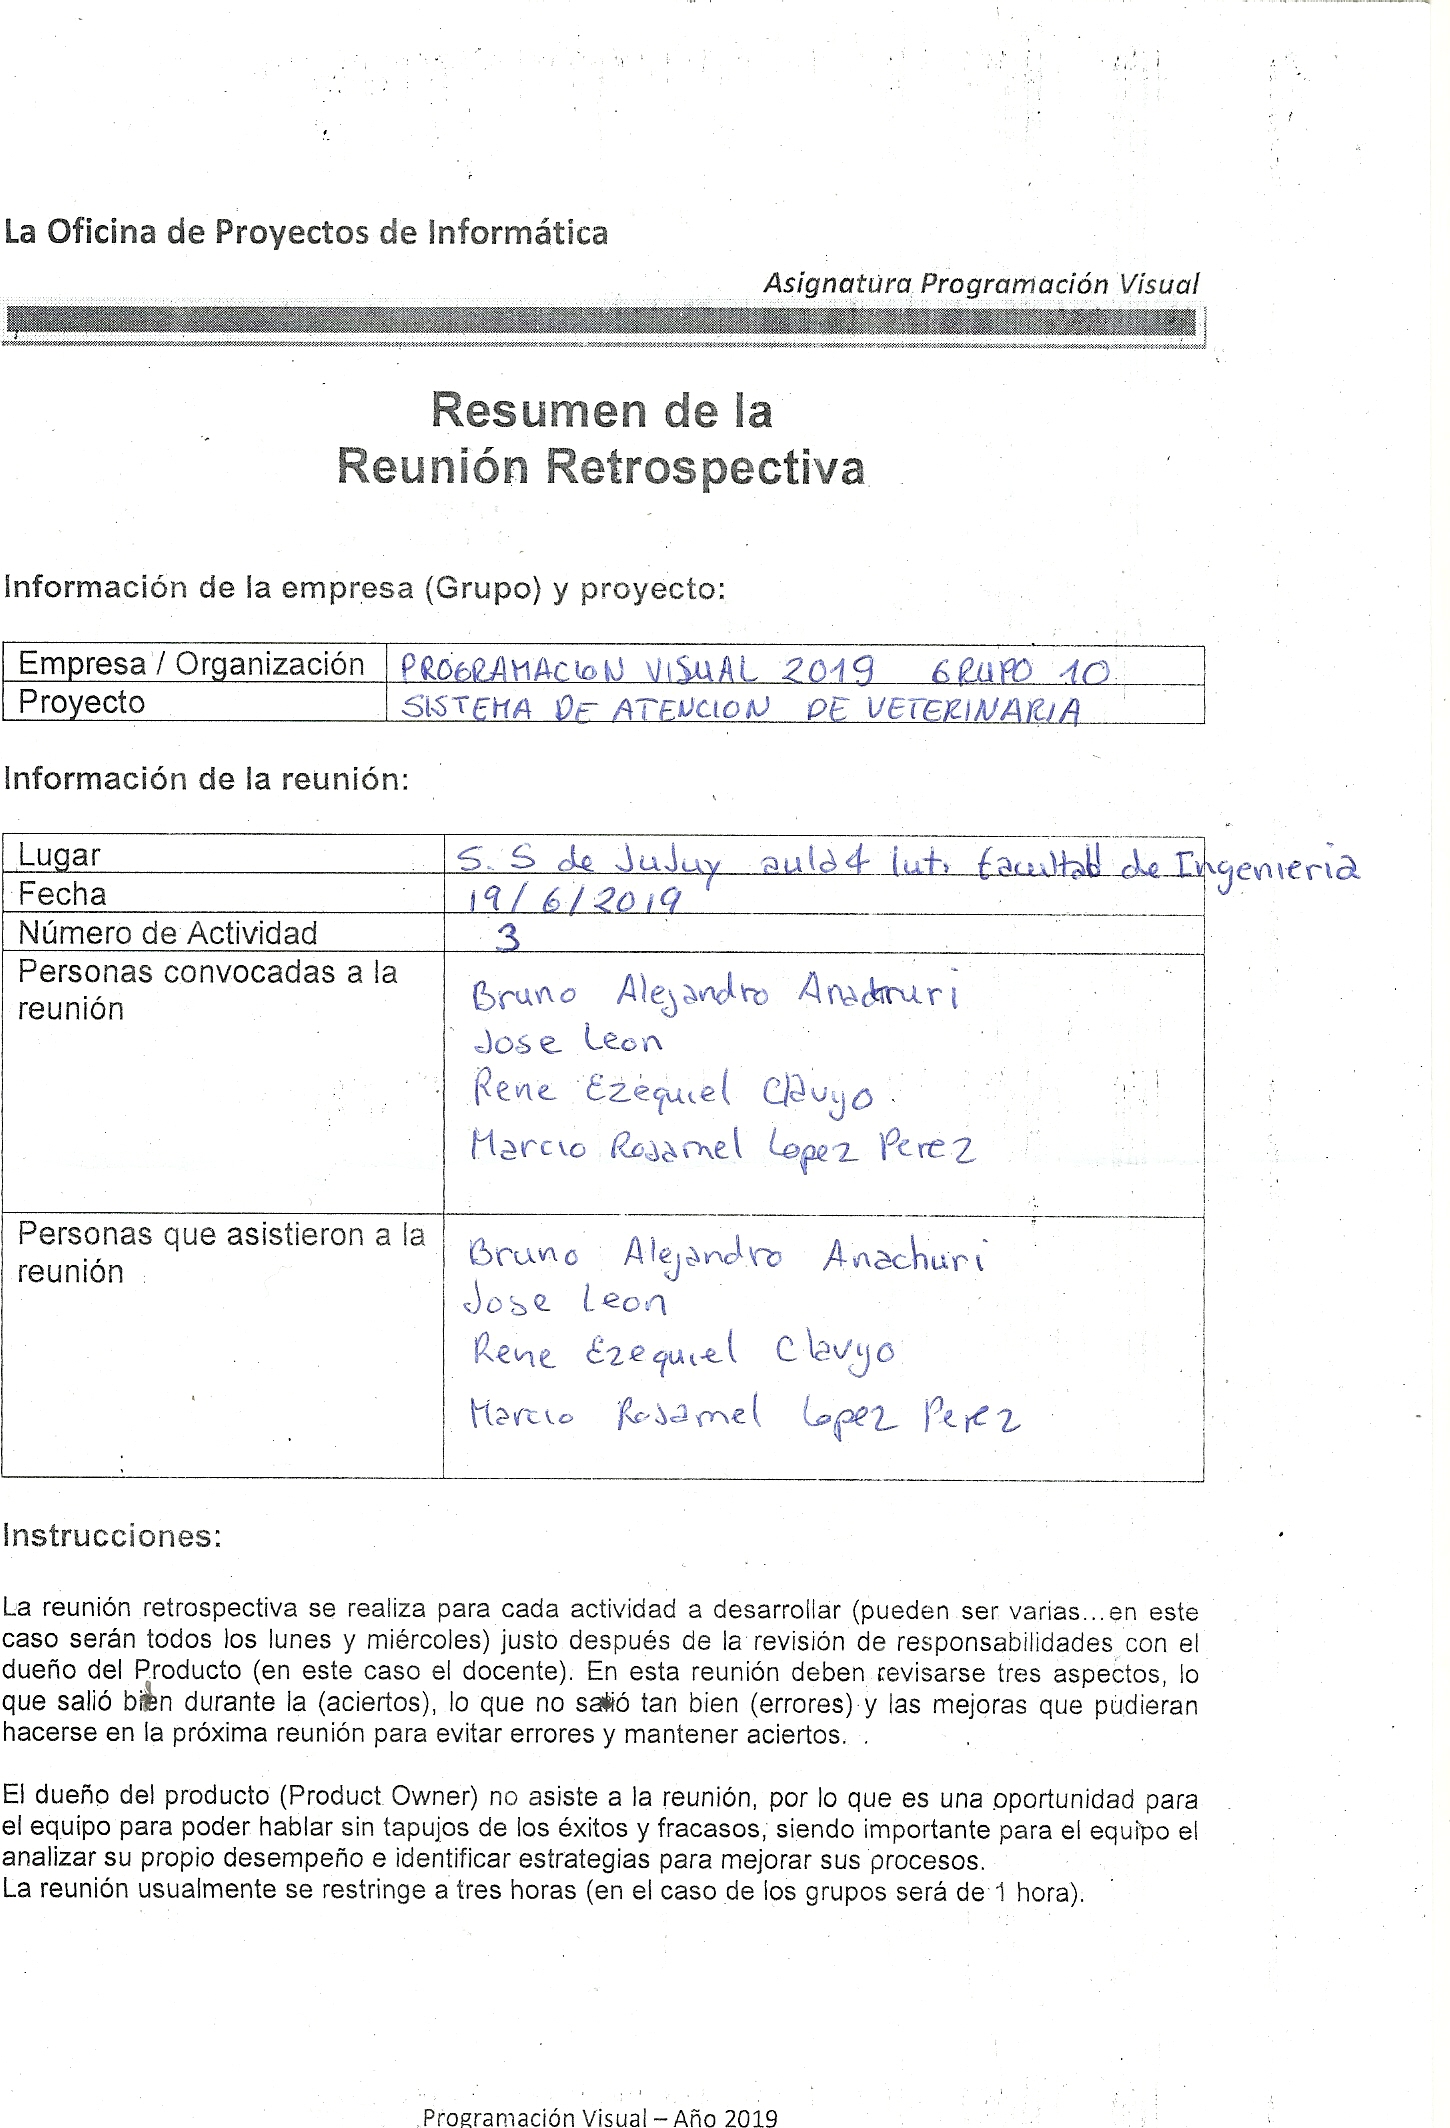 La Oficina de Proyectos de Informática
Asignatura Programación Visual
Resumen de la
Reunión Retrospectiva
Información de la empresa (Grupo) y proyecto:
Empresa / Organización PROGRAMACION VISUAL 2019 GRUPO 10
Proyecto SISTEMA DE ATENCION DE VETERINARIA
Información de la reunión:
Lugar S. S de JuJuy aula 4 Facultad de Ingenieria
Fecha 19/6/2019
Número de Actividad 3
Personas convocadas a la
reunión
Bruno Alejandro Anachuri
Jose Leon
Rene Ezequiel Clavyo
Marcio Rosamel Lopez Perez
Personas que asistieron a la
reunión
Bruno Alejandro Anachuri
Jose Leon
Rene Ezequiel Clavyo
Marcio Rosamel Lopez Perez
Instrucciones:
La reunión retrospectiva se realiza para cada actividad a desarrollar (pueden ser varias...en este
caso serán todos los lunes y miércoles) justo después de la revisión de responsabilidades con el
dueño del Producto (en este caso el docente). En esta reunión deben revisarse tres aspectos, lo
que salió bien durante la (aciertos), lo que no salió tan bien (errores) y las mejoras que pudieran
hacerse en la próxima reunión para evitar errores y mantener aciertos.
El dueño del producto (Product Owner) no asiste a la reunión, por lo que es una oportunidad para
el equipo para poder hablar sin tapujos de los éxitos y fracasos, siendo importante para el equipo el
analizar su propio desempeño e identificar estrategias para mejorar sus procesos.
La reunión usualmente se restringe a tres horas (en el caso de los grupos será de 1 hora).
Programación Visual – Año 2019